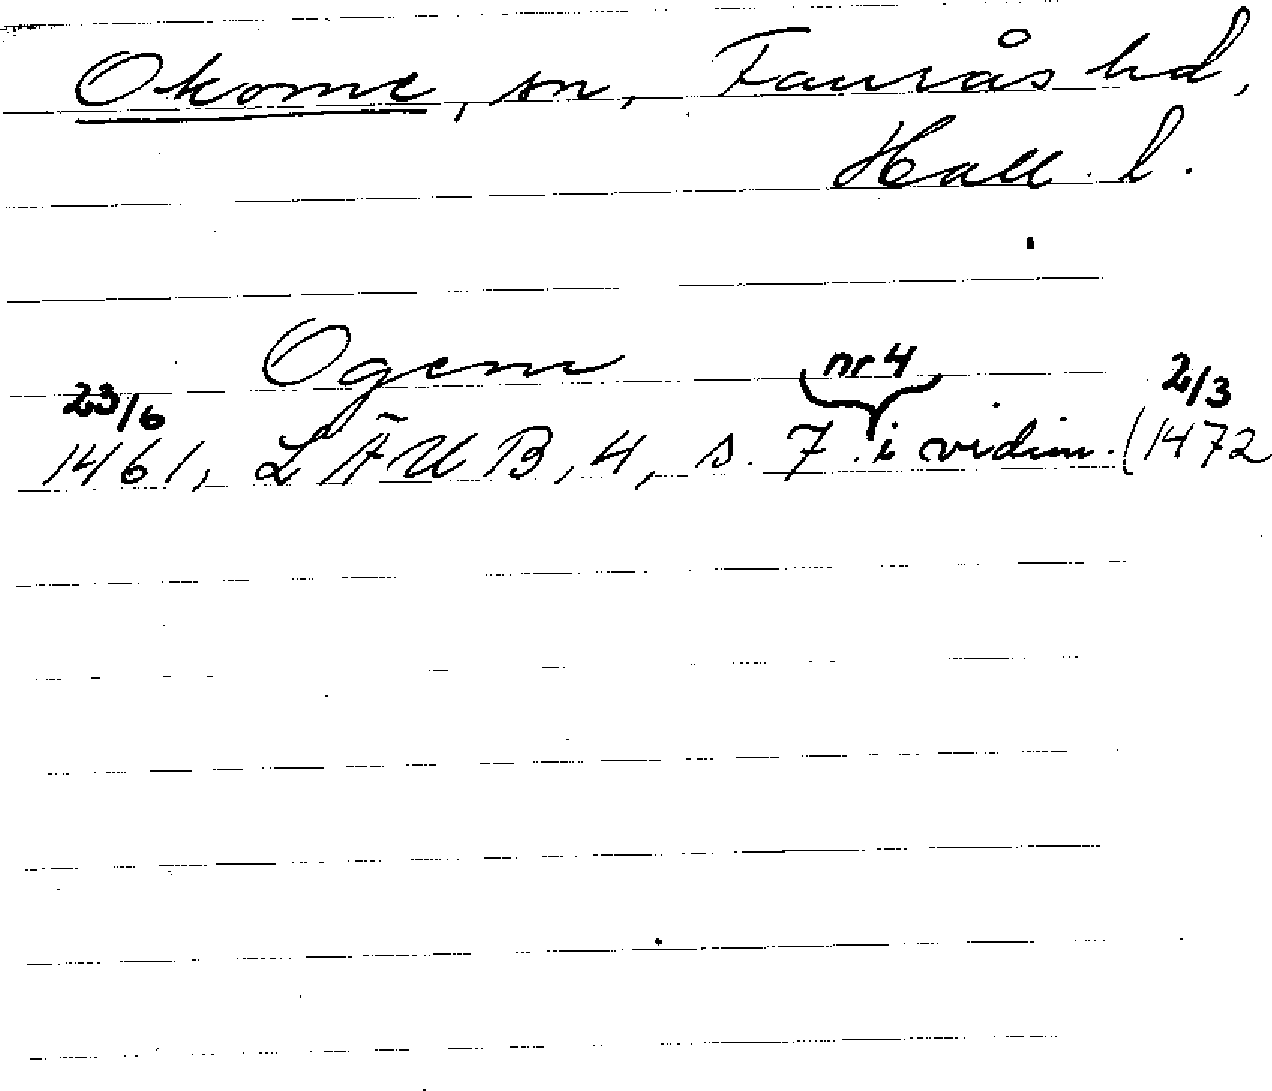 Okome, sn, Faurås hd,
Hall. l.
Ogem
23/6 1461, LÄUB, 4, s. 7 nr 4 i vidim. (2/3 1472